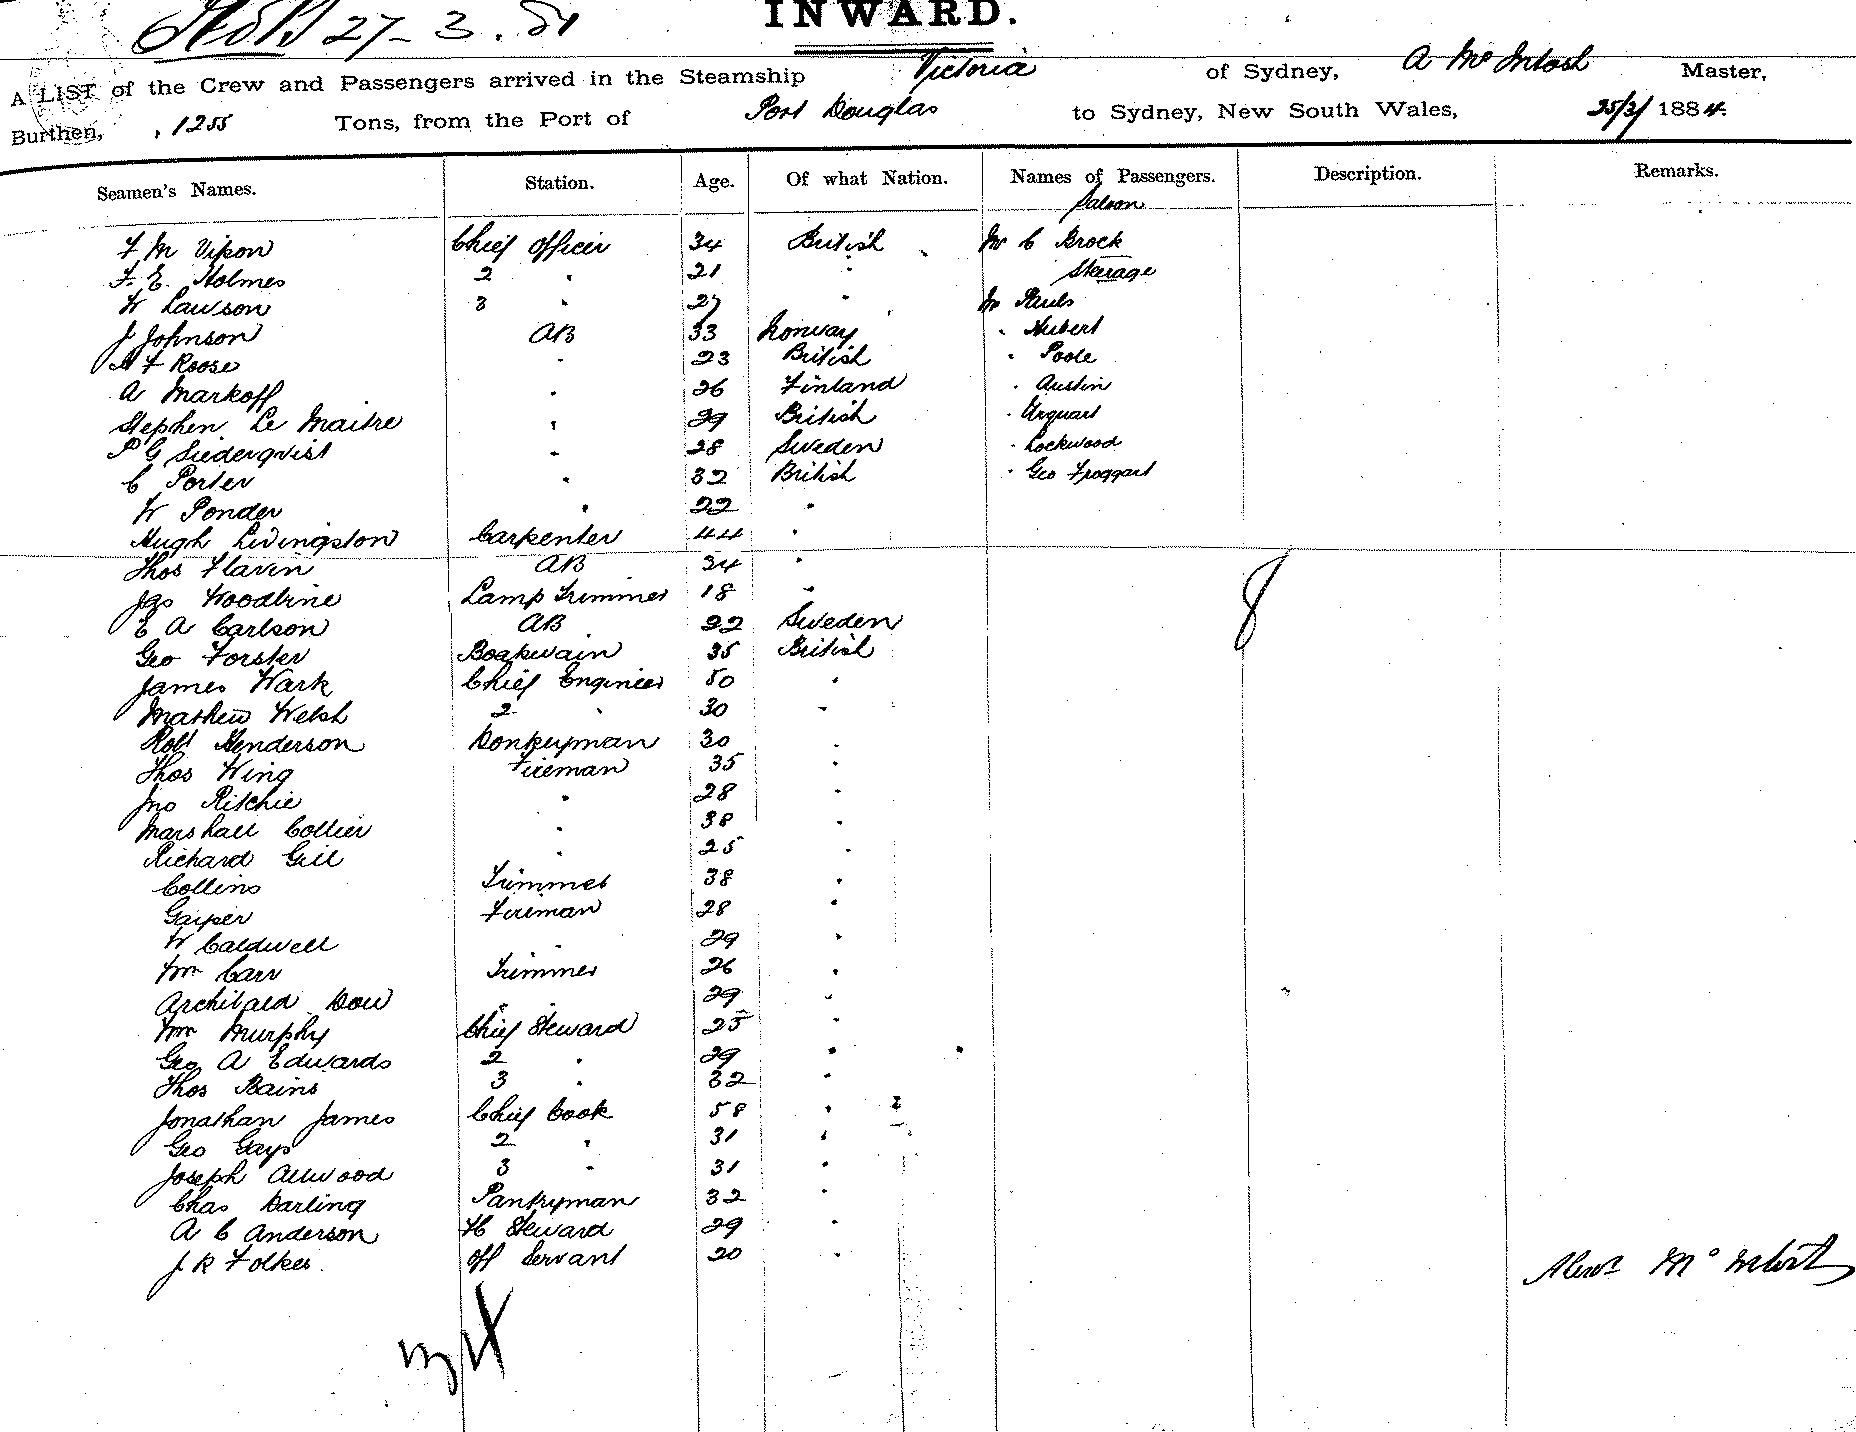 27-3.84
INWARD.
A LIST of the Crew and Passengers arrived in the Steamship Victoria of Sydney, A McIntosh Master,
Burthen, 1255 Tons, from the Port of Port Douglas to Sydney, New South Wales, 25/3/1884.
Seamen's Names. Station. Age. Of what Nation. Names of Passengers. Description. Remarks.
Saloon
F M Vipon Chief Officer 34 British Mr C Brock
F. E. Holmes 2 " 21 " Steerage
W Lawson 3 " 27 " Mr Pauls
J Johnson AB 33 Norway " Hubert
H F Roose " 23 British " Poole
A Markoff " 26 Finland " Austin
Stephen Le Maitre " 29 British " Urquart
P G Siederqvist " 28 Sweden " Lockwood
C Porter " 32 British " Geo Froggart
W Ponder " 22 "
Hugh Livingston Carpenter 44 "
Thos Flavin AB 34 "
Jas Woodbine Lamp Trimmer 18 "
E A Carlson AB 22 Sweden
Geo Forster Boatswain 35 British
James Wark Chief Engineer 50 "
Mathew Welsh 2 " 30 "
Robt Henderson Donkeyman 30 "
Thos Wing Fireman 35 "
Jno Ritchie " 28 "
Marshall Collier " 38 "
Richard Gill " 25 "
Collins Trimmer 38 "
Gasper Fireman 28 "
W Caldwell " 29 "
Wm Carr Trimmer 26 "
Archibald Dow " 29 "
Wm Murphy Chief Steward 25 "
Geo A Edwards 2 " 29 "
Thos Bains 3 " 32 "
Jonathan James Chief Cook 58 "
Geo Gays 2 " 31 "
Joseph Allwood 3 " 31 "
Chas Darling Pantryman 32 "
A C Anderson FC Steward 29 "
J R Folkes Off Servant 20 "
8
Alexr McIntosh